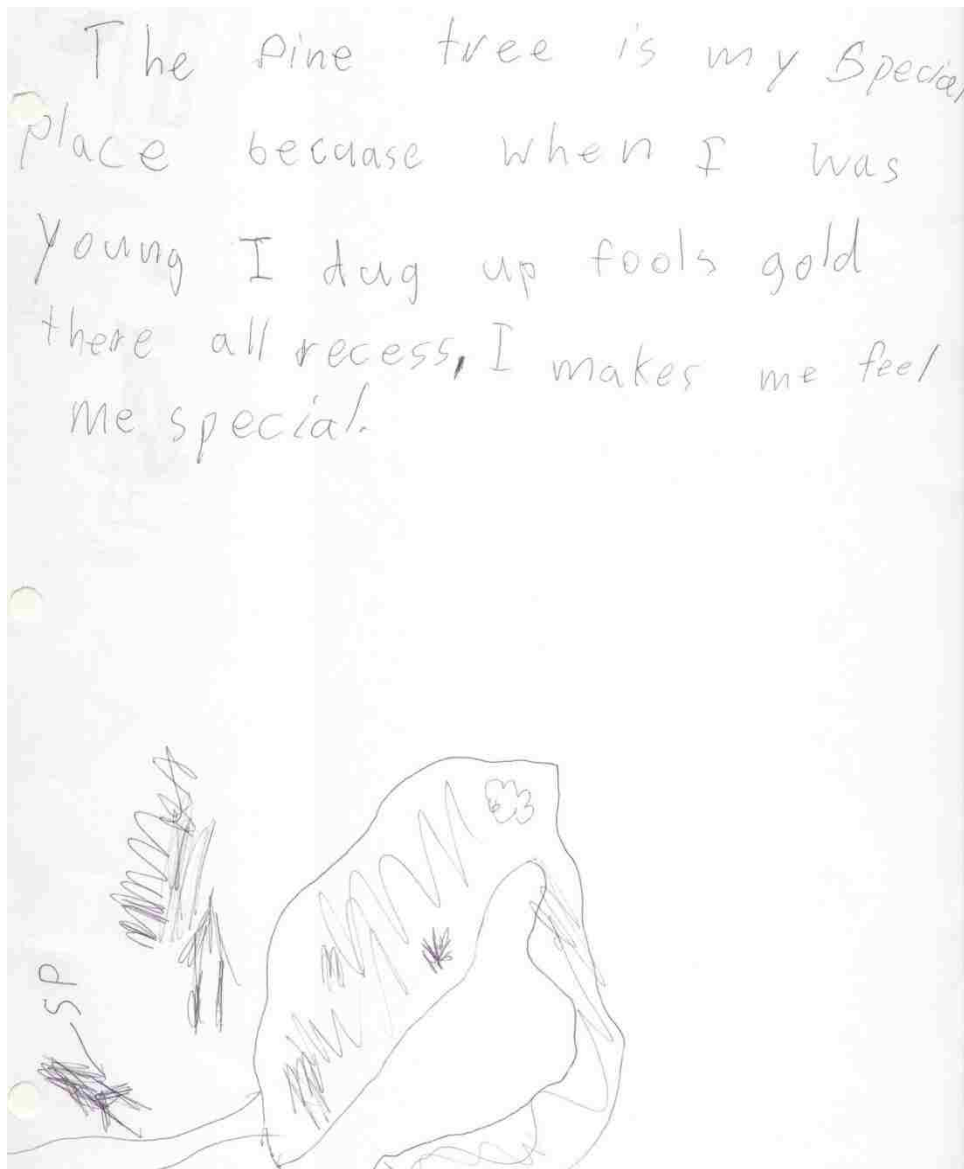 The pine tree is my Special
place becuase when I was
young I dug up fools gold
there all recess, I makes me feel
me special.
SP